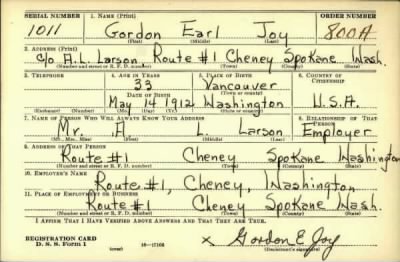 SERIAL NUMBER 1. NAME (Print) ORDER NUMBER
1011 Gordon Earl Joy 800A
(First) (Middle) (Last)
2. ADDRESS (Print)
c/o A.L. Larson Route #1 Cheney Spokane Wash.
(Number and street or R. F. D. number) (Town) (County) (State)
3. TELEPHONE 4. AGE IN YEARS 5. PLACE OF BIRTH 6. COUNTRY OF CITIZENSHIP
33 Vancouver
DATE OF BIRTH (Town or county)
May 14 1912 Washington U.S.A.
(Exchange) (Number) (Mo.) (Day) (Yr.) (State or country)
7. NAME OF PERSON WHO WILL ALWAYS KNOW YOUR ADDRESS 8. RELATIONSHIP OF THAT PERSON
Mr. A L. Larson Employer
(Mr., Mrs., Miss) (First) (Middle) (Last)
9. ADDRESS OF THAT PERSON
Route #1 Cheney Spokane Washington
(Number and street or R. F. D. number) (Town) (County) (State)
10. EMPLOYER'S NAME
Route #1, Cheney, Washington
11. PLACE OF EMPLOYMENT OR BUSINESS
Route #1 Cheney Spokane Wash.
(Number and street or R. F. D. number) (Town) (County) (State)
I AFFIRM THAT I HAVE VERIFIED ABOVE ANSWERS AND THAT THEY ARE TRUE.
REGISTRATION CARD
D. S. S. Form 1 (over) x Gordon E Joy
(Registrant's signature)